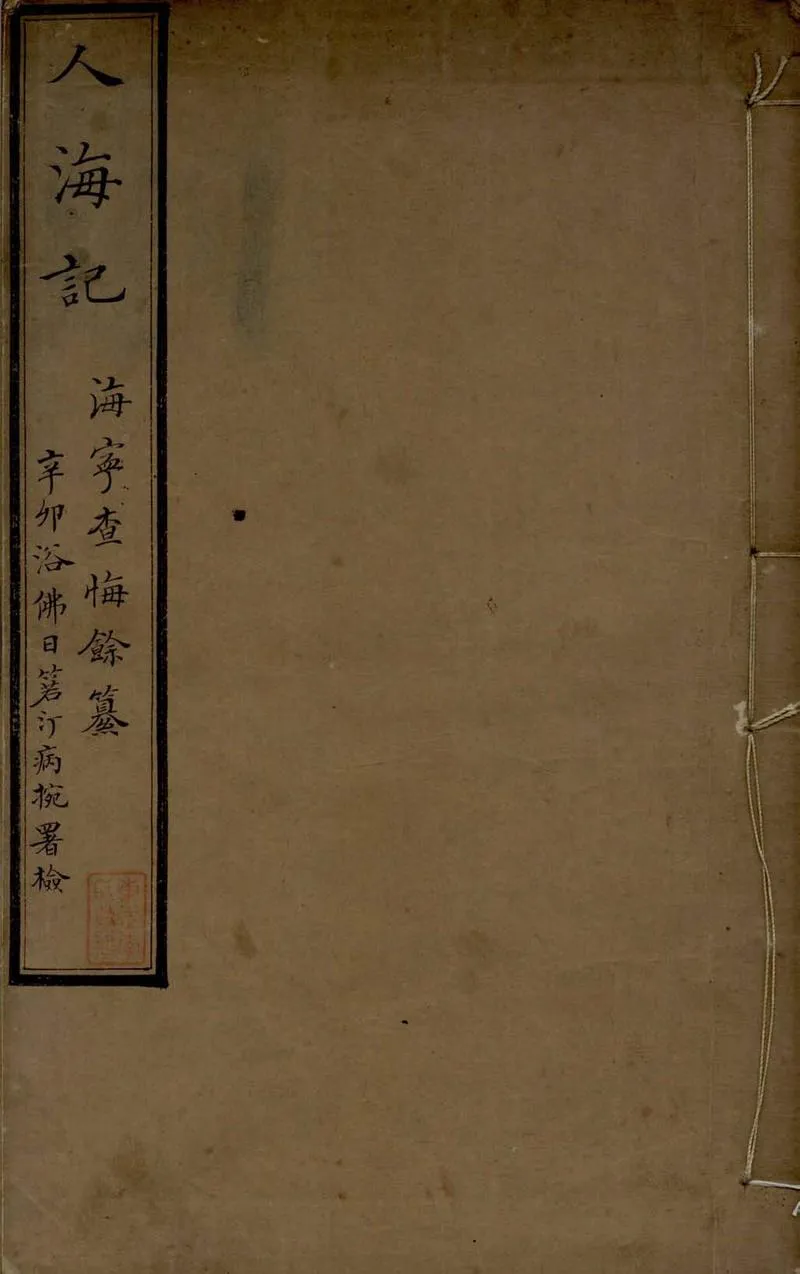 人海記
海寧查悔餘纂
辛卯浴佛日箬汀病捥署檢